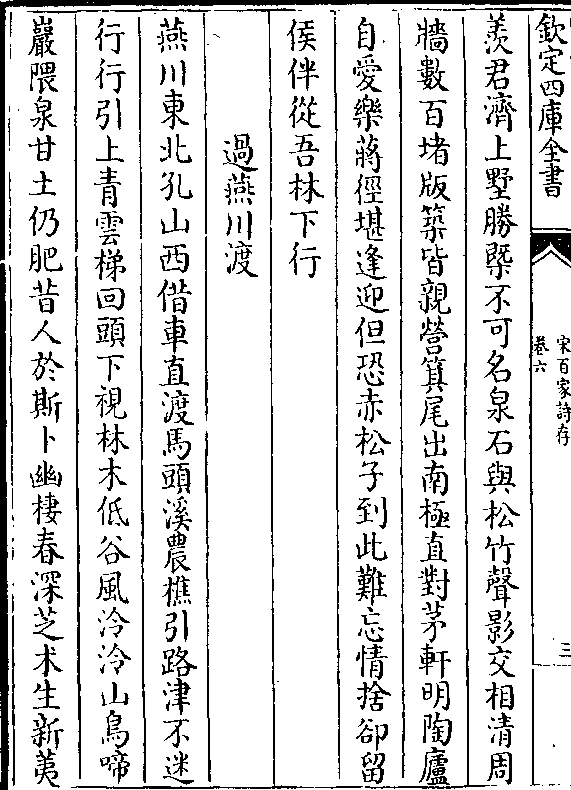 欽定四庫全書
宋百家詩存
卷六
三
羨君濟上墅勝槩不可名泉石與松竹聲影交相清周
牆數百堵版築皆親營箕尾出南極直對茅軒明陶廬
自愛樂蔣徑堪逢迎但恐赤松子到此難忘情捨卻留
侯伴從吾林下行
過燕川渡
燕川東北孔山西借車直渡馬頭溪農樵引路津不迷
行行引上青雲梯回頭下視林木低谷風泠泠山鳥啼
巖隈泉甘土仍肥昔人於斯卜幽棲春深芝术生新荑